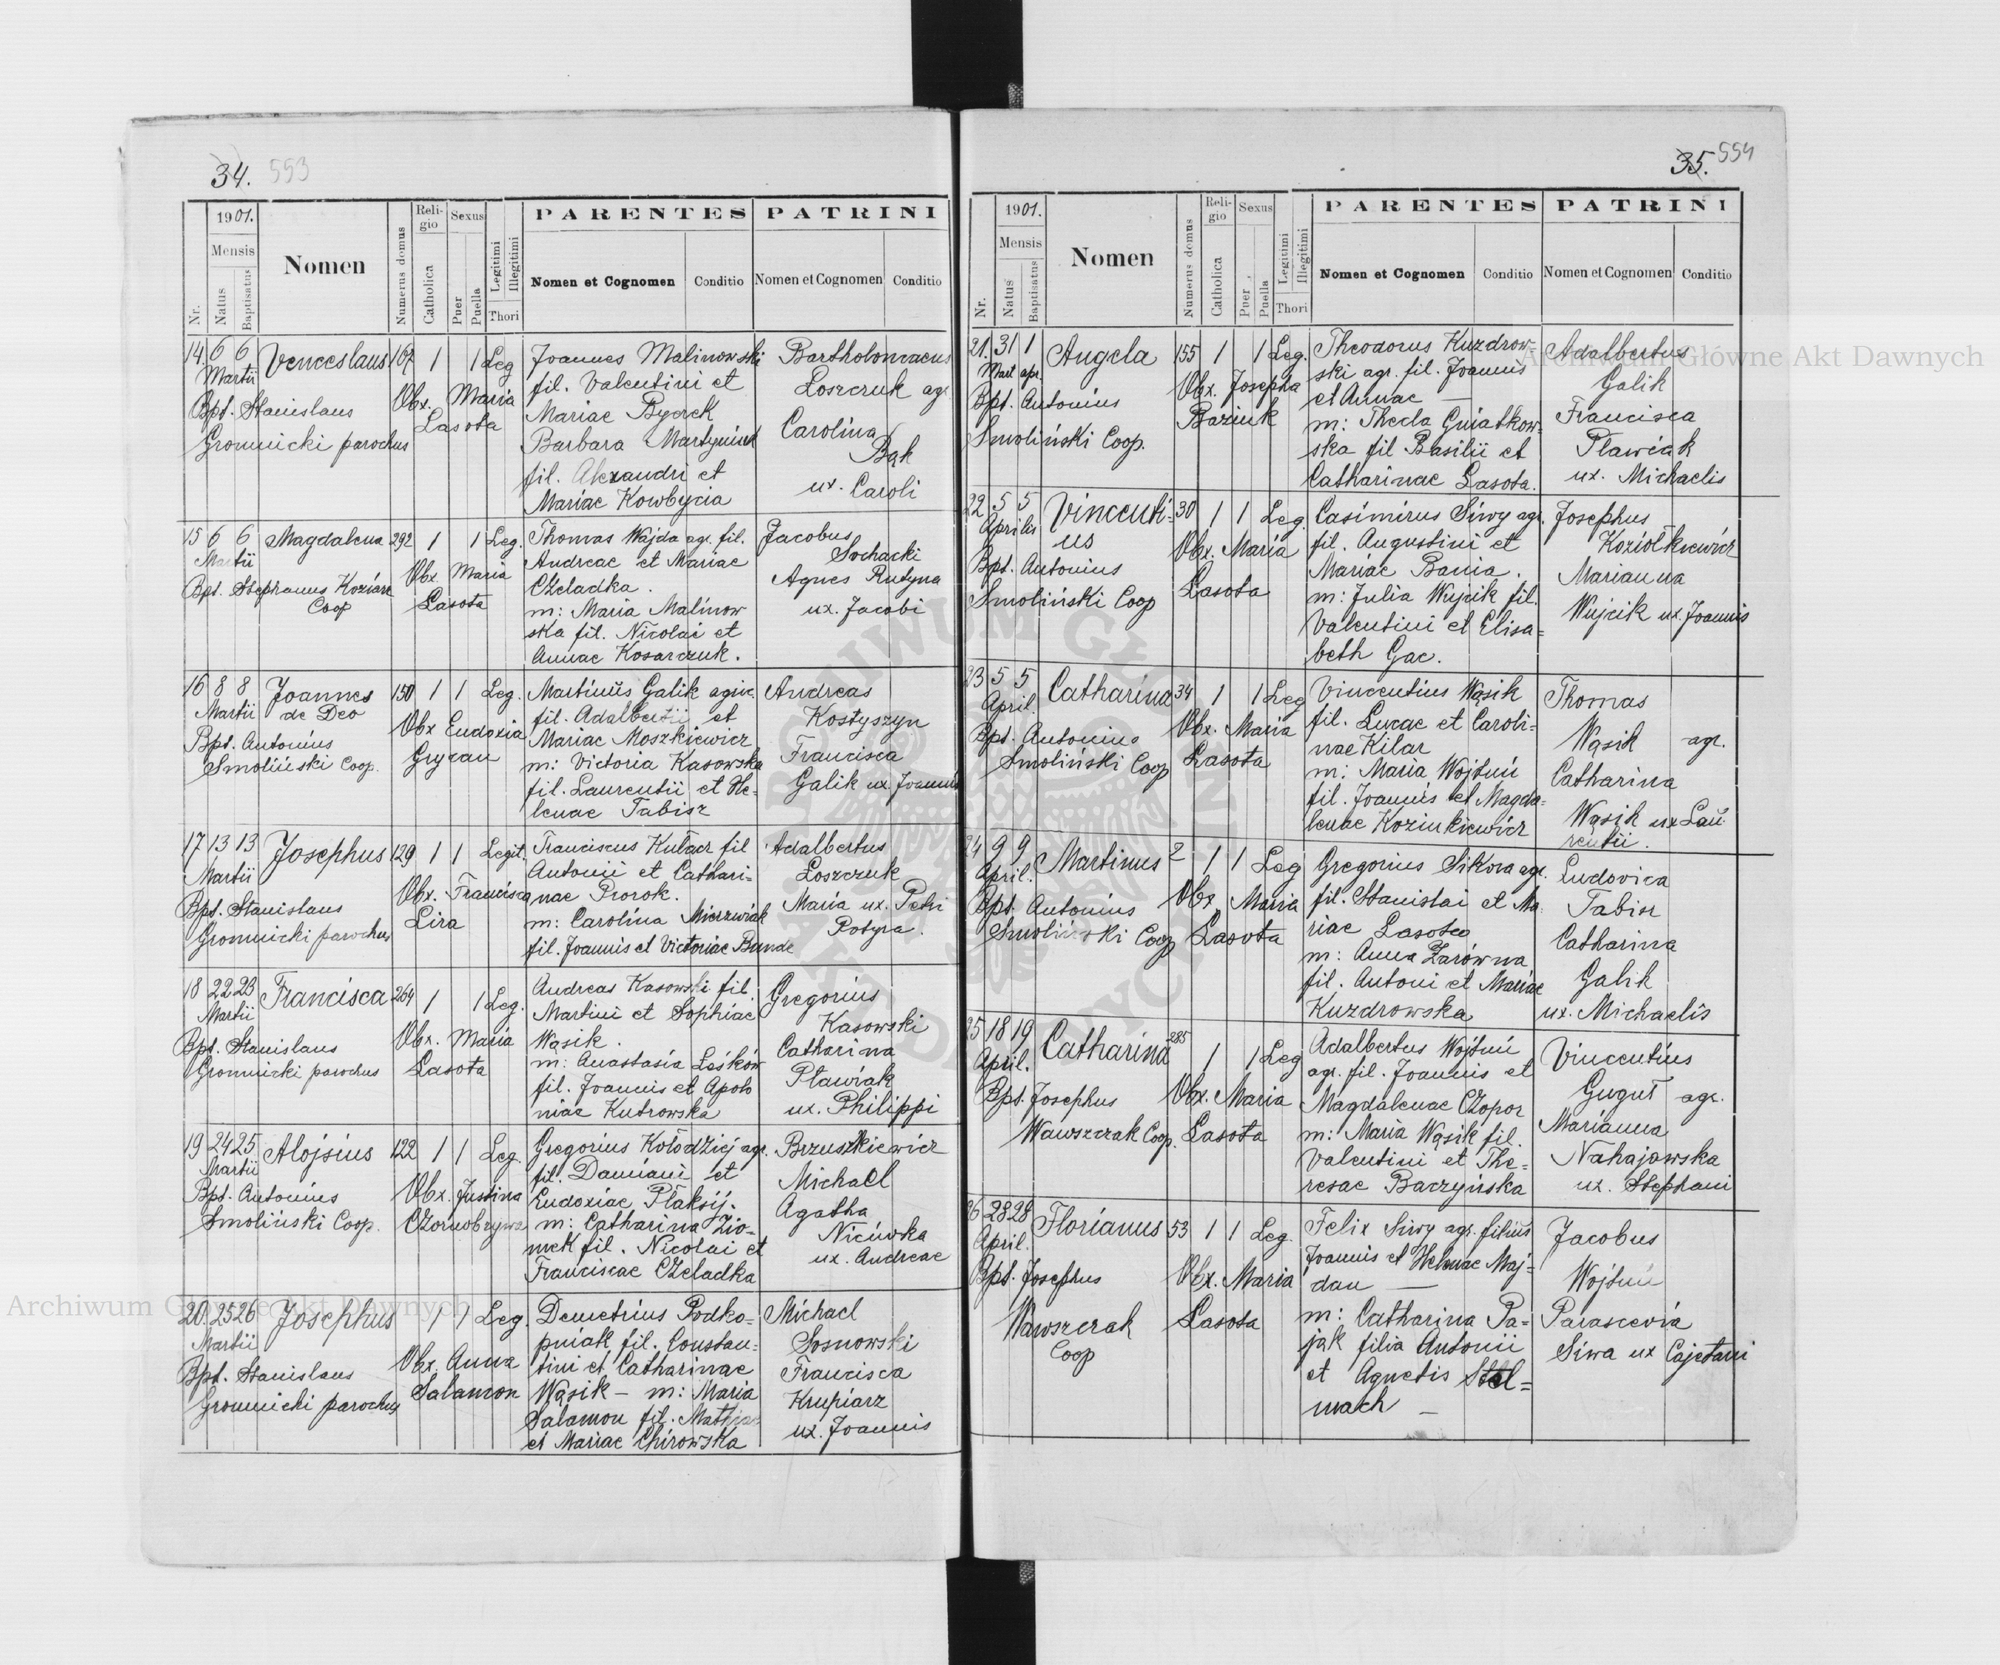 34. 553
1901.
Mensis
Nr.
Natus
Baptisatus
Nomen
Numerus domus
Religio
Catholica
Sexus
Puer
Puella
Legitimi
Illegitimi
Thori
PARENTES
Nomen et Cognomen
Conditio
PATRINI
Nomen et Cognomen
Conditio
14. 6 6 Venceslaus 167 1 1 Leg
Martii
Bpt. Stanislaus
Gromnicki parochus
Obx. Maria
Lasota
Joannes Malinowski
fil. Valentini et
Mariae Byczek
Barbara Martyniuk
fil. Alexandri et
Mariae Kowbycia
Bartholomaeus
Loszczuk agr.
Carolina
Bąk
ux. Caroli
15 6 6 Magdalena 292 1 1 Leg.
Martii
Bpt. Stephanus
Coop
Obx. Maria
Lasota
Thomas Wajda agr. fil.
Andreae et Mariae
Czeladka.
m: Maria Malinow
ska fil. Nicolai et
Annae Kosarczuk.
Jacobus
Sochacki
Agnes Rutyna
ux. Jacobi
16 8 8 Joannes 150 1 1 Leg.
Martii de Deo
Bpt. Antonius
Smoliński Coop.
Obx Eudoxia
Grycan
Martinus Galik agric.
fil. Adalbertii et
Mariae Moszkiewicz
m: Victoria Kasowska
fil. Laurentii et He-
lenae Tabisz
Andreas
Kostyszyn
Francisca
Galik ux. Joannis
17 13 13 Josephus 129 1 1 Legit.
Martii
Bpt. Stanislaus
Gromnicki parochus
Obx. Francisca
Lira
Franciscus Kułacz fil
Antonii et Cathari-
nae Prorok.
m: Carolina Mierzwiak
fil. Joannis et Victoriae Bunda
Adalbertus
Loszczuk
Maria ux. Petri
Rotyra.
18 22 23 Francisca 264 1 1 Leg.
Martii
Bpt. Stanislaus
Gromnicki parochus
Obx. Maria
Lasota
Andreas Kasowski fil.
Martini et Sophiae
Wąsik.
m: Anastasia Leśków
fil. Joannis et Apolo
niae Kutrowska
Gregorius
Kasowski
Catharina
Pławiak
ux. Philippi
19 24 25. Alojsius 122 1 1 Leg.
Martii
Bpt. Antonius
Smoliński Coop.
Obx. Justina
Czornobrywa
Gregorius Kołodziej agr.
fil. Damiani et
Eudoxiae Płaksij.
m: Catharina Zio-
mek fil. Nicolai et
Franciscae Czeladka
Brzuszkiewicz
Michael
Agatha
ux. Andreae
20. 25 26 Josephus 1 1 Leg.
Martii
Bpt. Stanislaus
Gromnicki parochus
Obx. Anna
Salamon
Demetrius Podko-
pniak fil. Constan-
tini et Catharinae
Wąsik - m: Maria
Salamon fil.
et Mariae Chirowska
Michael
Sosnowski
Francisca
Krupiarz
ux. Joannis
35. 554
1901.
Mensis
Nr.
Natus
Baptisatus
Nomen
Numerus domus
Religio
Catholica
Sexus
Puer
Puella
Legitimi
Illegitimi
Thori
PARENTES
Nomen et Cognomen
Conditio
PATRINI
Nomen et Cognomen
Conditio
21. 31 1 Angela 155 1 1 Leg.
Mart apr.
Bpt. Antonius
Smoliński Coop.
Obx. Josepha
Baziuk
Theodorus Kuzdrow-
ski agr. fil. Joannis
et Annae —
m: Thecla Gniatkow-
ska fil Basilii et
Catharinae Lasota.
Adalbertus
Galik
Francisca
Pławiak
ux. Michaelis
22. 5 5 Vincenti-
Aprilis us 30 1 1 Leg.
Bpt. Antonius
Smoliński Coop
Obx. Maria
Lasota
Casimirus Siwy agr.
fil. Augustini et
Mariae Bania.
m: Julia Wujcik fil.
Valentini et Elisa=
beth Gac.
Josephus
Koziołkiewicz
Marianna
Wujcik ux. Joannis
23 5 5 Catharina 34 1 1 Leg
April.
Bpt. Antonius
Smoliński Coop
Obx. Maria
Lasota
Vincentius Wąsik
fil. Lucae et Caroli-
nae Kilar
m: Maria Wojtuń
fil. Joannis et Magda=
lenae Koziukiewicz
Thomas
Wąsik agr.
Catharina
Wąsik ux Lau
rentii.
24 9 9 Martinus 2 1 1 Leg
April.
Bpt. Antonius
Smoliński Coop
Obx Maria
Lasota
Gregorius Sikora agr.
fil. Stanislai et Ma
riae Lasota
m: Anna Żarówna
fil. Antoni et Mariae
Kuzdrowska
Ludovica
Tabisz
Catharina
Galik
ux. Michaelis
25 18 19 Catharina 285 1 1 Leg
April.
Bpt. Josephus
Wawszczak Coop.
Obx. Maria
Lasota
Adalbertus Wojtuń
agr. fil. Joannis et
Magdalenae Czopor
m: Maria Wąsik fil.
Valentini et The-
resae Baczyńska
Vincentius
Guguł agr.
Marianna
Nahajowska
ux. Stephani
26 28 28 Florianus 53 1 1 Leg.
April.
Bpt. Josephus
Wawszczak
Coop
Obx. Maria
Lasota
Felix Siwy agr. filius
Joannis et Helenae Maj-
dan —
m: Catharina Pa-
jąk filia Antonii
et Agnetis Stel=
mach —
Jacobus
Wojtuń
Parascevia
Siwa ux Cajetani
Archiwum Główne Akt Dawnych
Archiwum Główne Akt Dawnych
ARCHIWUM GŁÓWNE AKT DAWNYCH